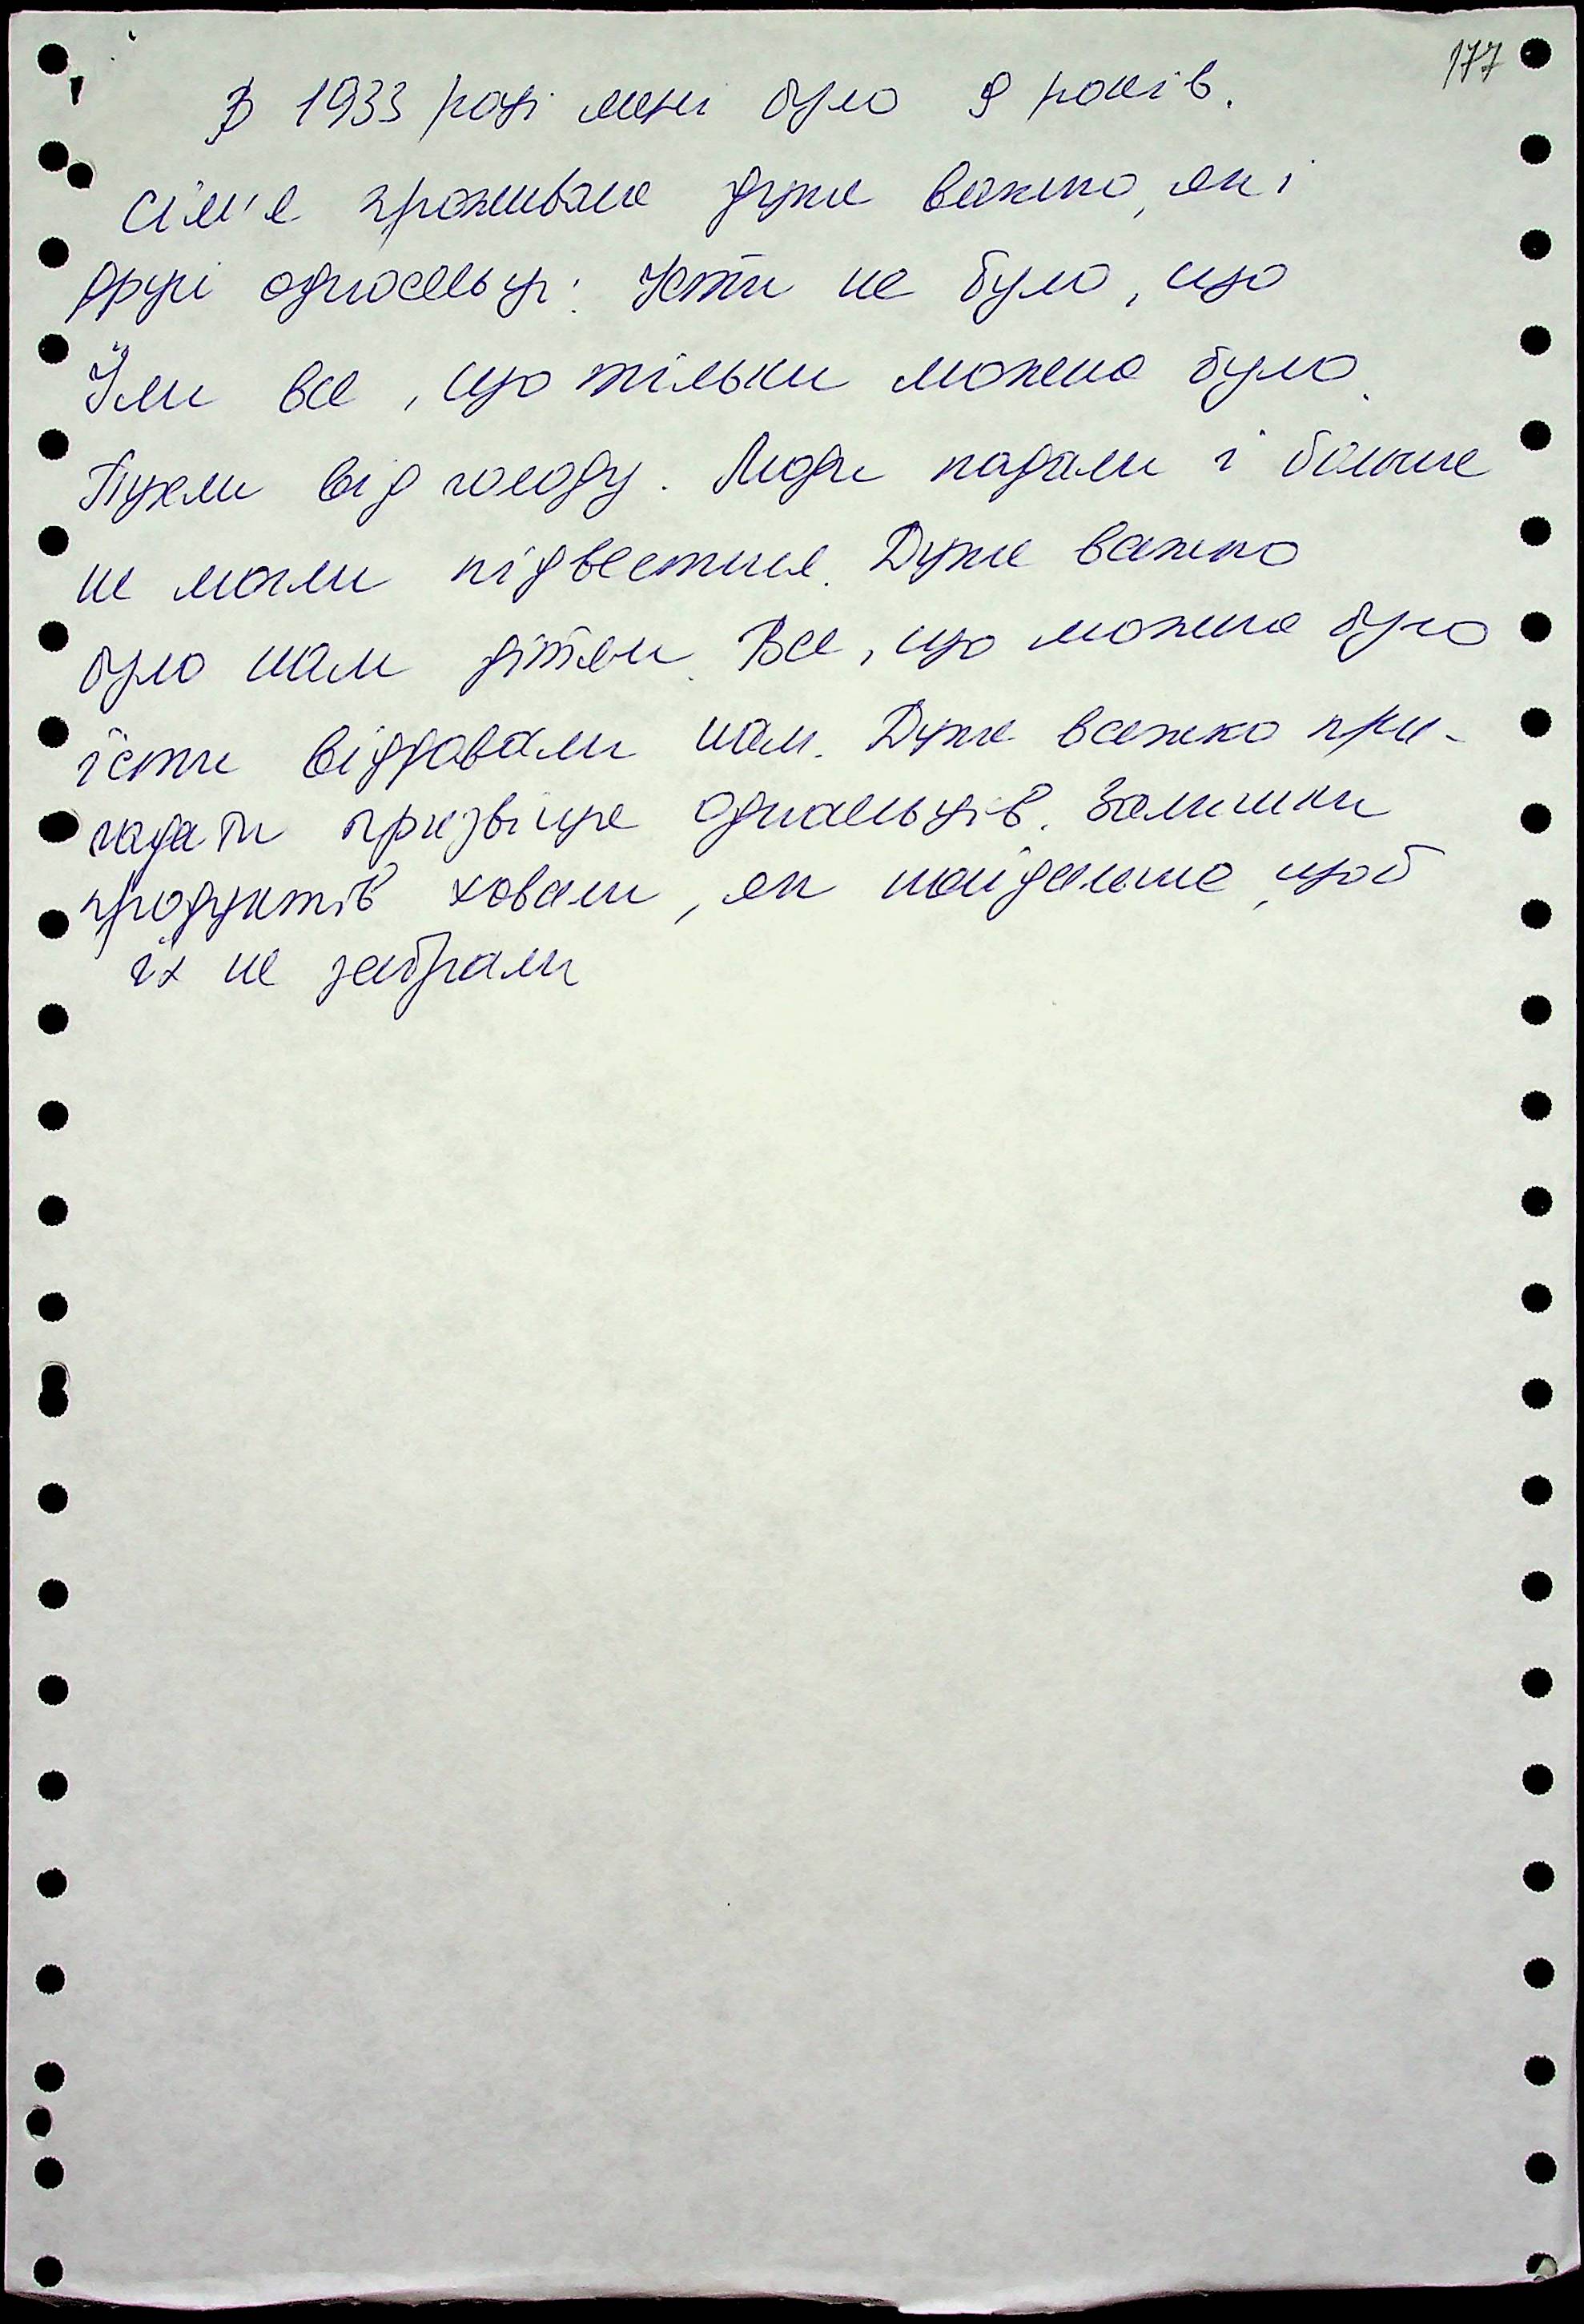 177
В 1933 році мені було 9 років.
сім'я проживала дуже важко, як і
другі односельці. Їсти не було, що
Їли все, що тільки можна було.
Пухли від голоду. Люди падали і більше
не могли підвестися. Дуже важко
було нам дітям. Все, що можна було
їсти віддавали нам. Дуже важко при-
гадати прізвище односельців. Залишки
продуктів ховали, як найдальше, щоб
їх не забрали